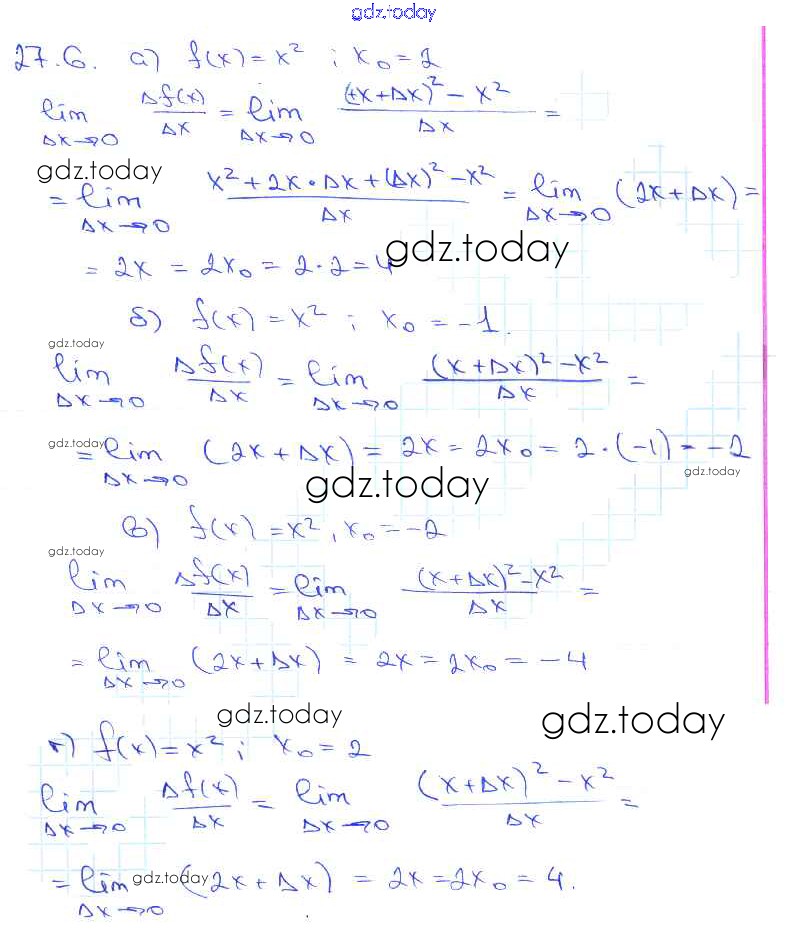 gdz.today
27.6. а) f(x) = x² ; x₀ = 2
lim Δx→0 Δf(x)/Δx = lim Δx→0 ((x+Δx)² - x²)/Δx =
gdz.today
= lim Δx→0 (x² + 2x·Δx + (Δx)² - x²)/Δx = lim Δx→0 (2x + Δx) =
= 2x = 2x₀ = 2·2 = 4
gdz.today
б) f(x) = x² ; x₀ = -1.
gdz.today
lim Δx→0 Δf(x)/Δx = lim Δx→0 ((x+Δx)² - x²)/Δx =
gdz.today
= lim Δx→0 (2x + Δx) = 2x = 2x₀ = 2·(-1) = -2
gdz.today
gdz.today
в) f(x) = x², x₀ = -2
gdz.today
lim Δx→0 Δf(x)/Δx = lim Δx→0 ((x+Δx)² - x²)/Δx =
= lim Δx→0 (2x + Δx) = 2x = 2x₀ = -4
gdz.today
gdz.today
г) f(x) = x² ; x₀ = 2
lim Δx→0 Δf(x)/Δx = lim Δx→0 ((x+Δx)² - x²)/Δx =
= lim Δx→0 (2x + Δx) = 2x = 2x₀ = 4.
gdz.today